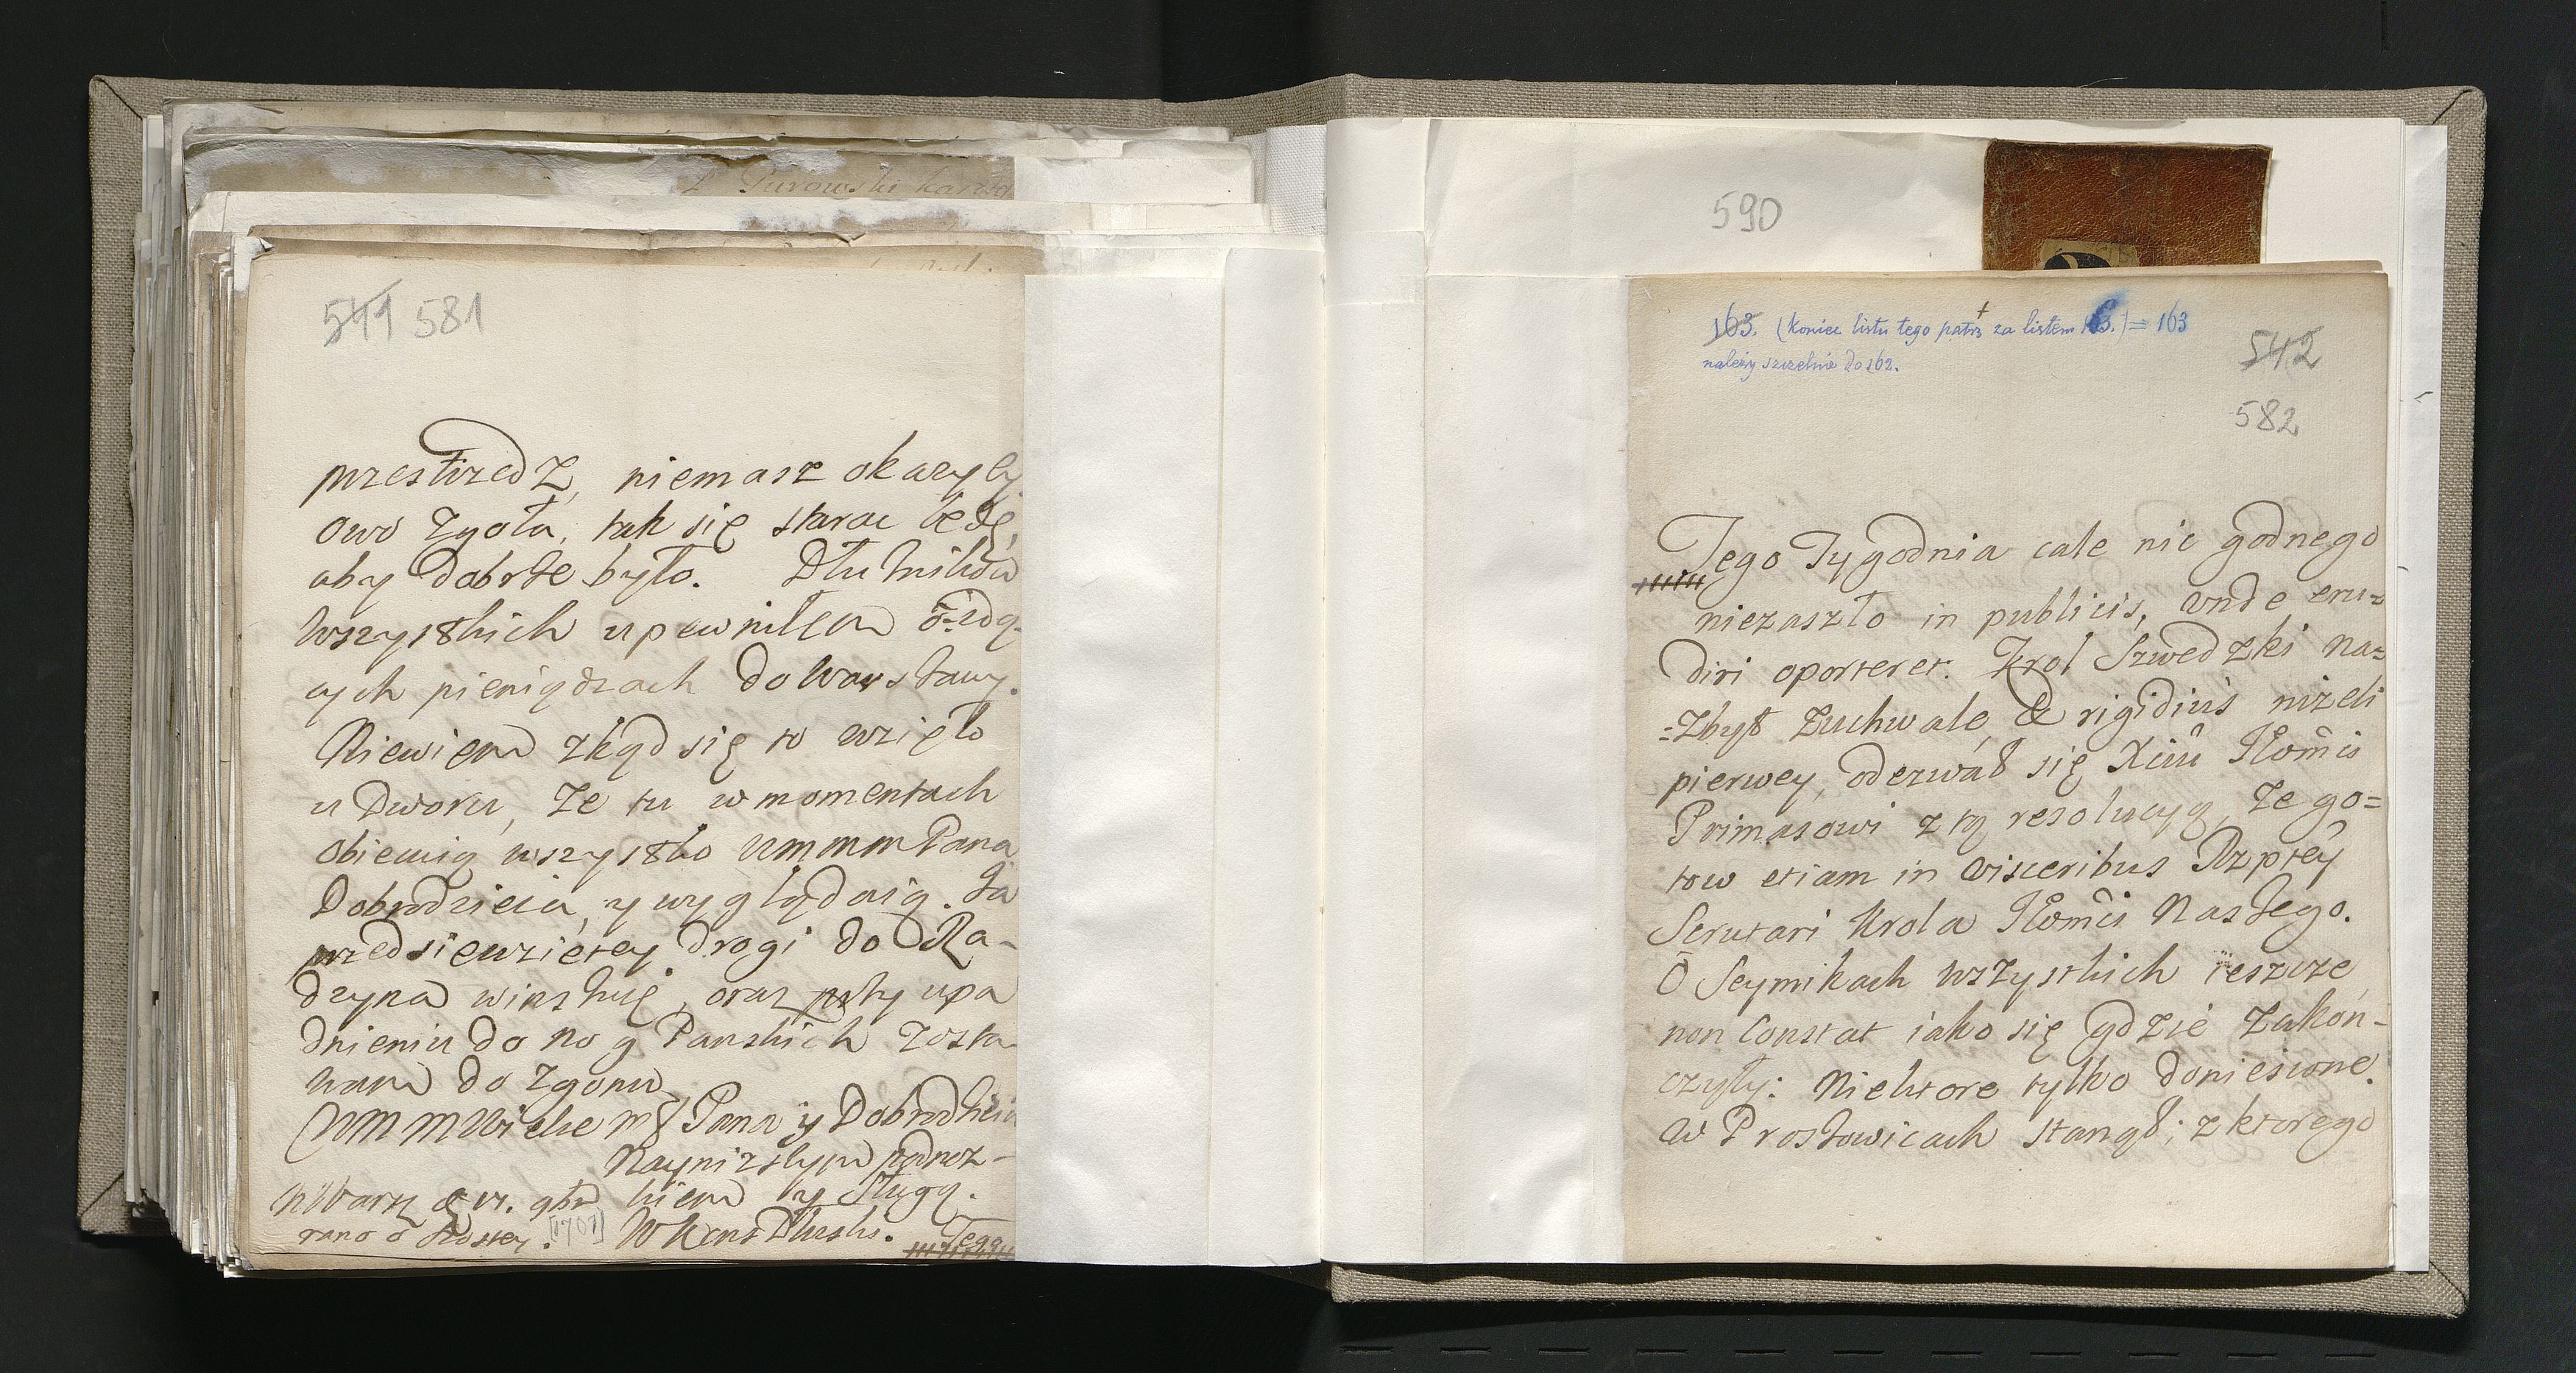 P Purowski
541 581
przestrzedz, niemasz okazyey
owo zgoła, tak się starac będę,
aby dobrze było. Dłużników
wszystkich upewniłem o idą-
cych pieniądzach do Warszawy.
Niewiem zkąd się to wzięło
u Dworu, że tu w momentach
obiecuią wszystko WMMM Pana
Dobrodzieia, y wyglądaią. Ja
przedsiewziętey drogi do Ra-
dzyna winszuię, oraz przy upa
dnieniu do nog Panskich zosta-
wam do zgonu
WMM Wielce M Pana y Dobrodzieia
Nayniższym podnoż-
w Warsz 8 vi. 9br kiem y sługą.
rano o szostey. [1701] W Dłuski. Tego
590
163. (Koniec listu tego patrz za listem 163.) = 163
należy szczelnie do 162.
542
582
Tego Tygodnia cale nic godnego
niezaszło in publicis, unde eru-
diri oporteret. Krol Szwedzki na-
-zbyt zuchwale, & rigidius niżeli
pierwey, odezwał się Xciu Jłomci
Primasowi z tą resolucyą, że go=
tow etiam in visceribus Rzptey
Scrutari Krola Jłomci Naszego.
O Seymikach wszystkich ieszcze
non Constat iako się gdzie zakon-
czyły: Niektore tylko doniesione.
W Proszowicach stanął; z ktorego